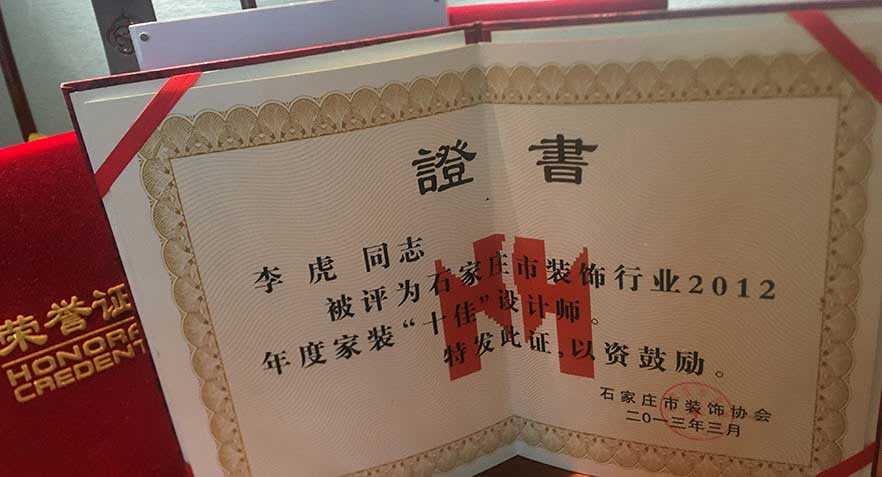 證書
李虎 同志
被评为石家庄市装饰行业2012
年度家装“十佳”设计师。
特发此证,以资鼓励。
石家庄市装饰协会
二〇一三年三月
荣誉证
HONORA
CREDENT